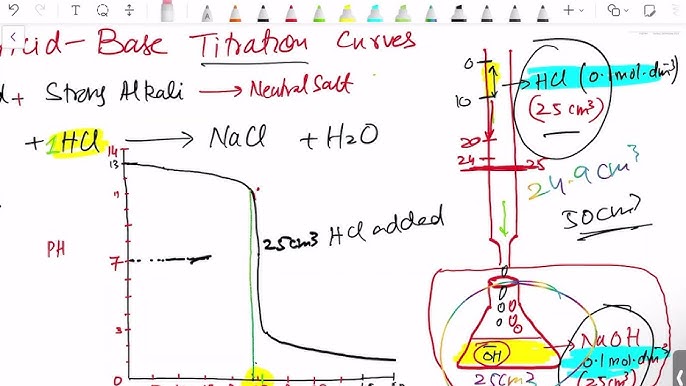 Acid-Base Titration Curves
+ Strong Alkali → Neutral Salt
+ 1HCl → NaCl + H2O
14
13
11
PH
7
3
0
25cm3 HCl added
0
10
20
24
25
HCl (0.1mol.dm-3)
(25cm3)
24.9cm3
50cm3
OH
NaOH
0.1mol.dm-3
(25cm3)
25cm3